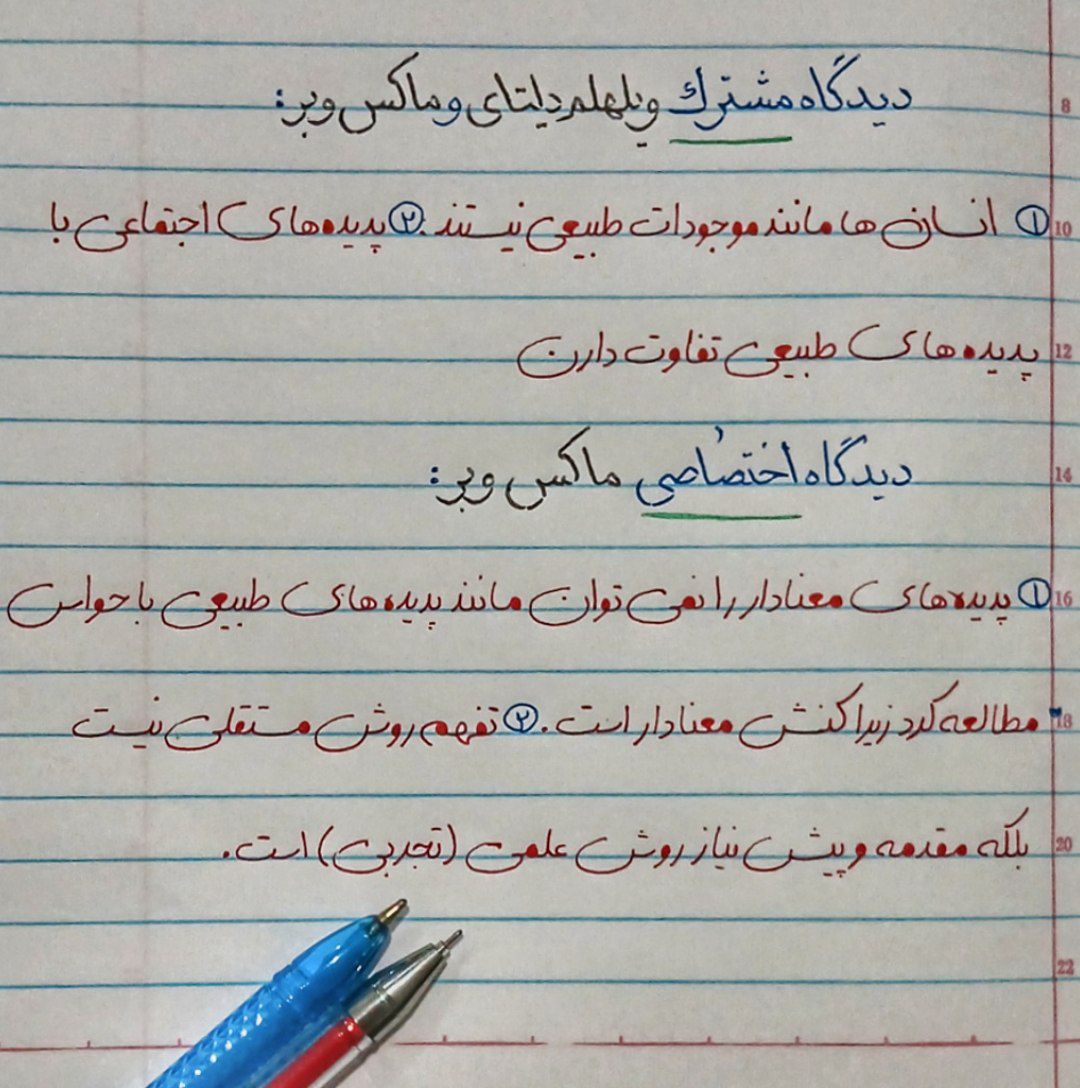 دیدگاه مشترك ویلهلم دیلتای و ماکس وبر:
① انسان ها مانند موجودات طبیعی نیستند. ② پدیده های اجتماعی با
پدیده های طبیعی تفاوت دارن
دیدگاه اختصاصی ماکس وبر:
① پدیده های معنادار را نمی توان مانند پدیده های طبیعی با حواس
مطالعه کرد زیرا کنش معنادار است. ② تفهم روش مستقلی نیست
بلکه مقدمه و پیش نیاز روش علمی (تجربی) است.
8
10
12
14
16
18
20
22